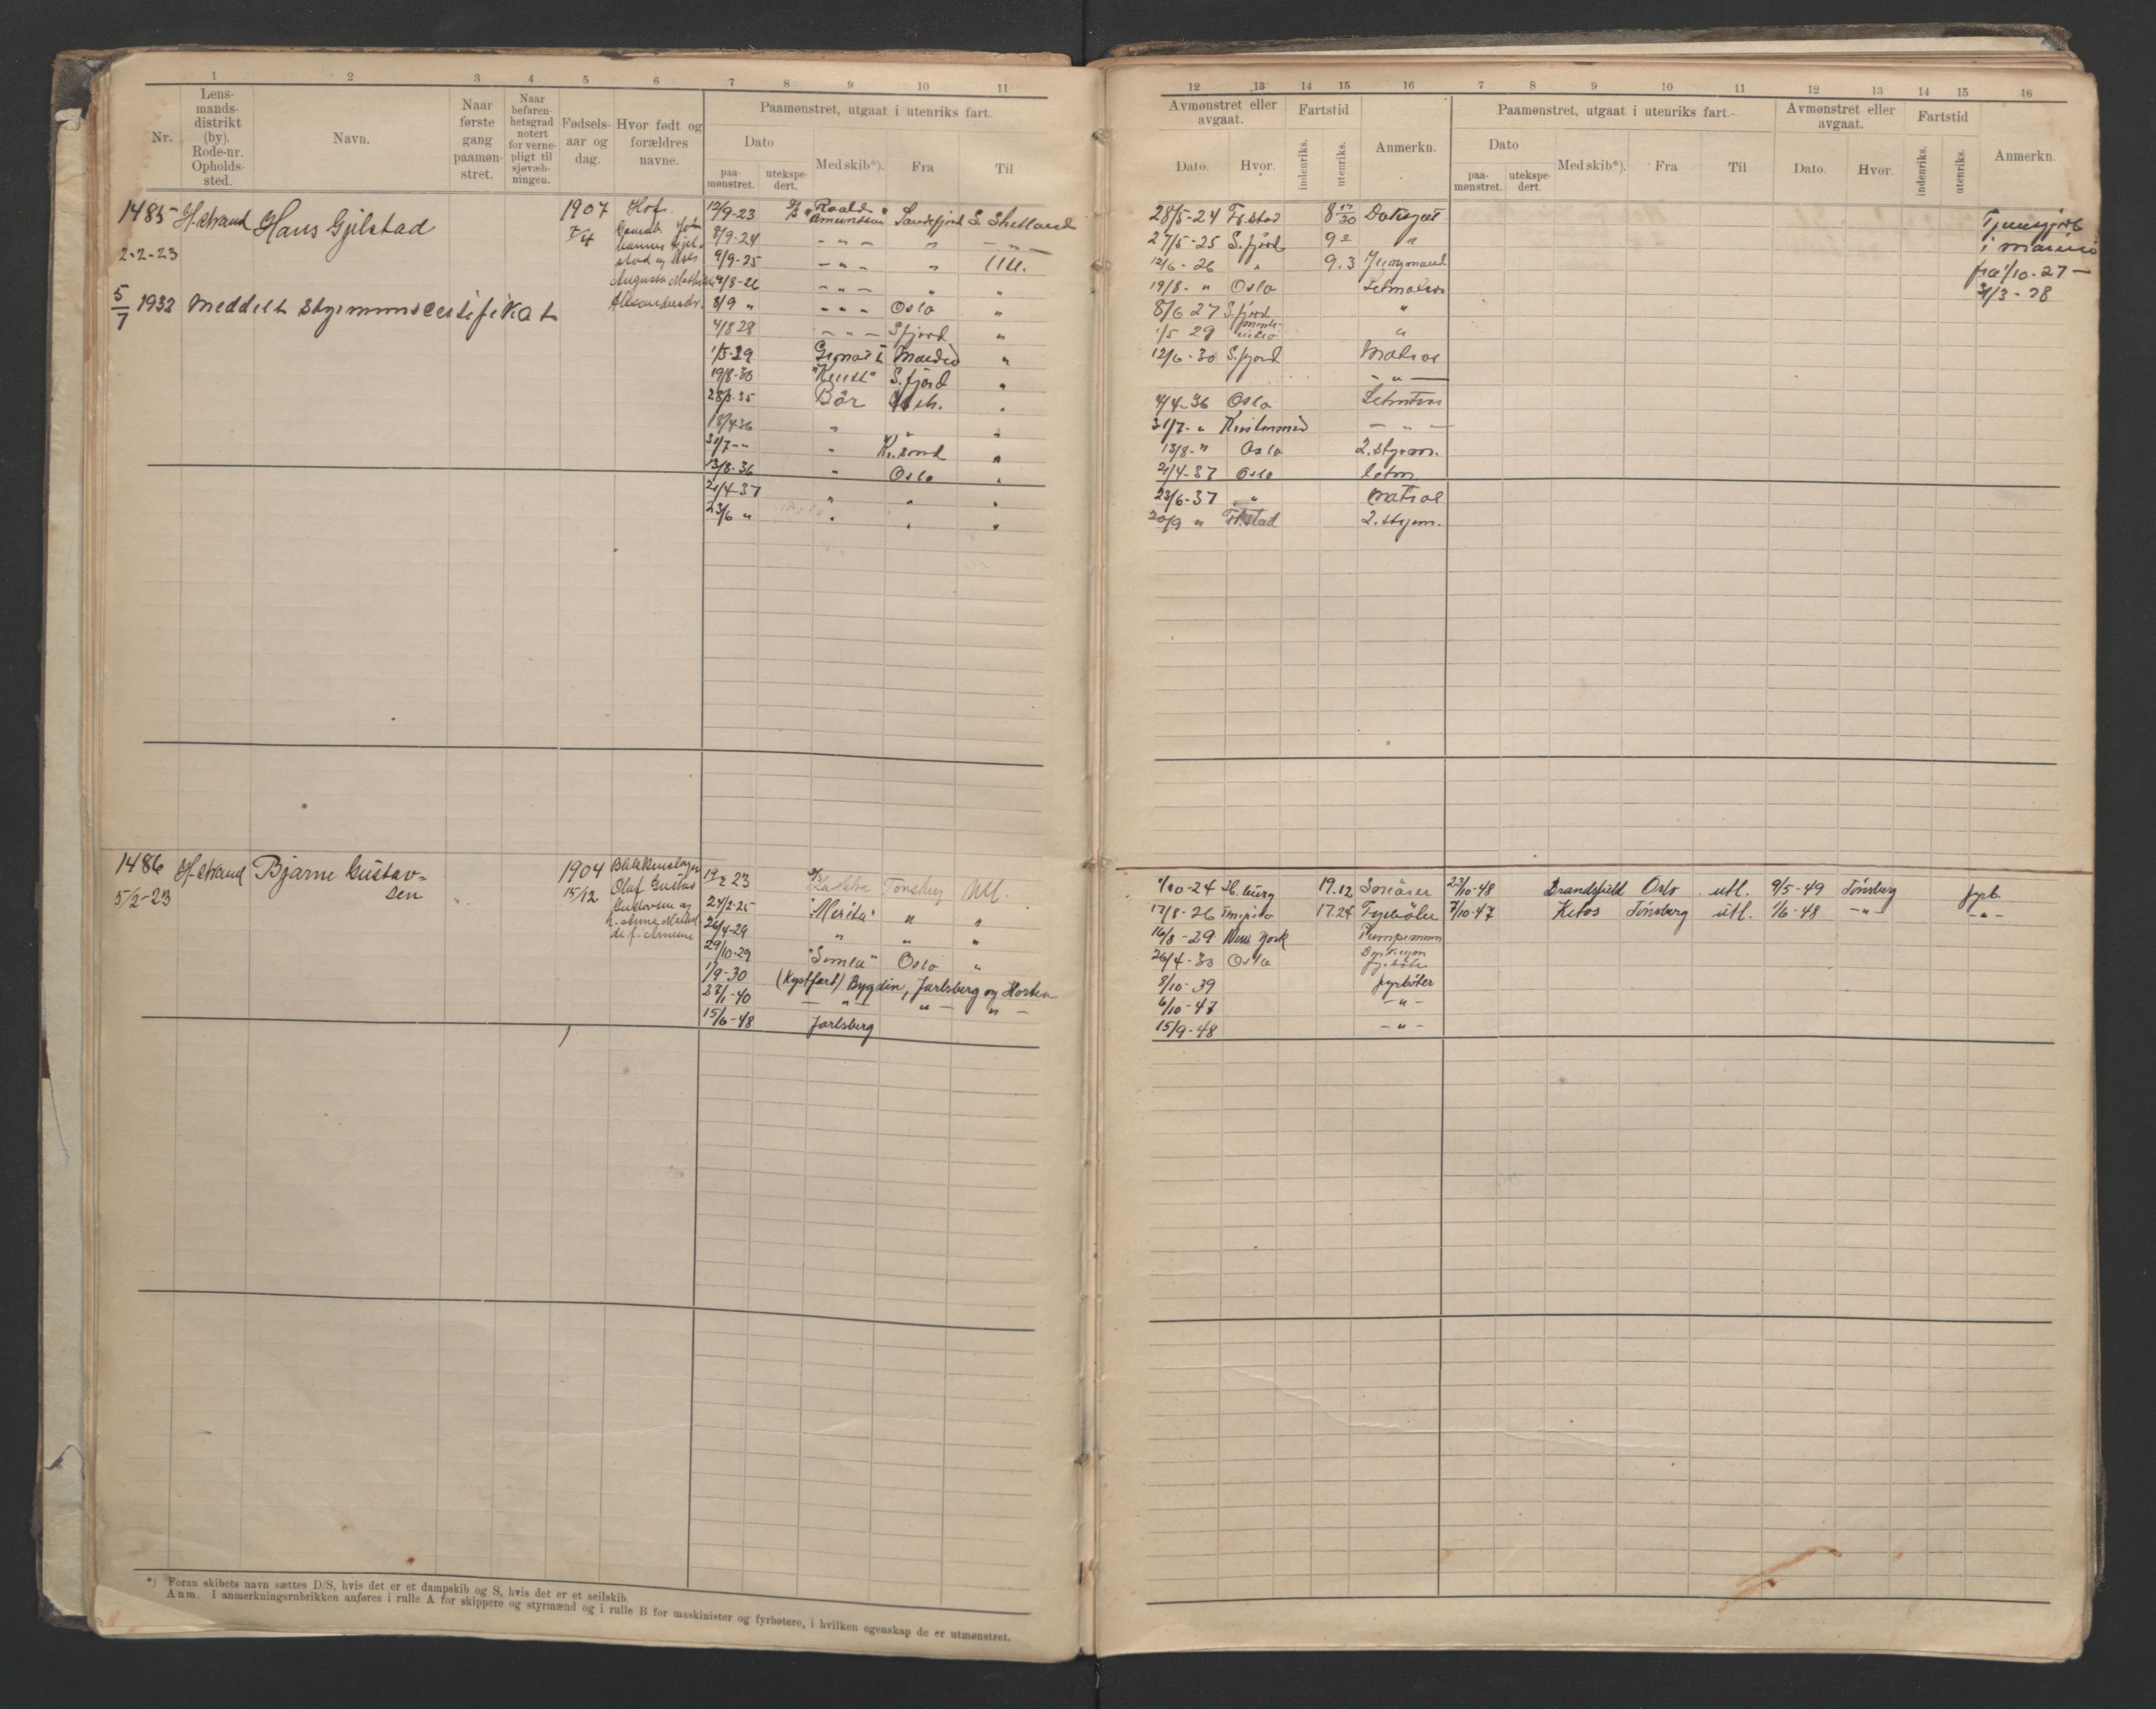 1 2 3 4 5 6 7 8 9 10 11
Nr. Lens-mands-distrikt (by). Rode-nr. Opholds-sted. Navn. Naar første gang paamøn-stret. Naar befaren-hetsgrad notert for verne-pligt til sjøvæb-ningen. Fødsels-aar og dag. Hvor født og forældres navne.
Paamønstret, utgaat i utenriks fart.
Dato
paa-mønstret. utekspe-dert. Med skib*). Fra Til
1485 H.strand Hans Gjilstad 1907 Hof 12/9-23 D/S "Roald Amundsen" Sandefjord S. Shetland
8/9-24 - " - " - " -
2-2-23 9/9-25 - " - " Utl.
- " - " "
5/7 1932 Meddelt Styrmannscertifikat 8/9 " - " - Oslo "
4/8 28 - " - S fjord "
1/5-29 "
19/8-30 S. fjord "
Bör "
18/4 36 " " "
31/7 - " " Kr.sand "
13/8-36 " Oslo "
21/4-37 " " "
23/6 " " " "
1486 H.strand Bjarne Gustav-
sen 1904 15/12 19/2 23 Tønsberg Utl.
5/2-23 Olaf Gustav
24/2-25 "Merita" " "
26/4-29 " " "
29/10-29 "Simla" Oslo "
1/9-30 (Kystfart) Bygdin, Jarlsberg og Horten
27/1-40 - " - " - " -
15/6-48 Jarlsberg
*) Foran skibets navn sættes D/S, hvis det er et dampskib og S, hvis det er et seilskib.
Anm. I anmerkningsrubrikken anføres i rulle A for skippere og styrmænd og i rulle B for maskinister og fyrbøtere, i hvilken egenskap de er utmønstret.
12 13 14 15 16 7 8 9 10 11 12 13 14 15 16
Avmønstret eller avgaat. Fartstid Anmerkn. Paamønstret, utgaat i utenriks fart.- Avmønstret eller avgaat. Fartstid Anmerkn.
Dato. Hvor. indenriks. utenriks. Dato paa-mønstret. utekspe-dert. Med skib*). Fra Til Dato. Hvor. indenriks. utenriks.
28/5-24 Fr.stad 8 17/30 Dæksgut
27/5-25 S. fjord 9 "
i marine
12/6-26 " 9.3 Jungmand
fra 1/10-27 -
19/8- " Oslo Letmatros
31/3-28
8/6 27 S. fjord "
1/5 29 "
12/6-30 S. fjord Matros
- " -
4/4-36 Oslo Letmatros
31/7- " - " -
13/8- " Oslo 2. styrm.
21/4-37 Oslo
23/6-37 " Matros
20/9 " Fr.stad 2. styrm.
1/10-24 19.12 22/10-48 Brandsfield Oslo utl. 9/5-49 Tönsberg fyrb.
17/8-26 17.24 Fyrböter 7/10-47 Ketos Tönsberg utl. 1/6-48 - " - - " -
16/8-29 New York Pumpemann
26/4-30 Oslo
8/10-39 fyrböter
6/10-47 - " -
15/9-48 - " -